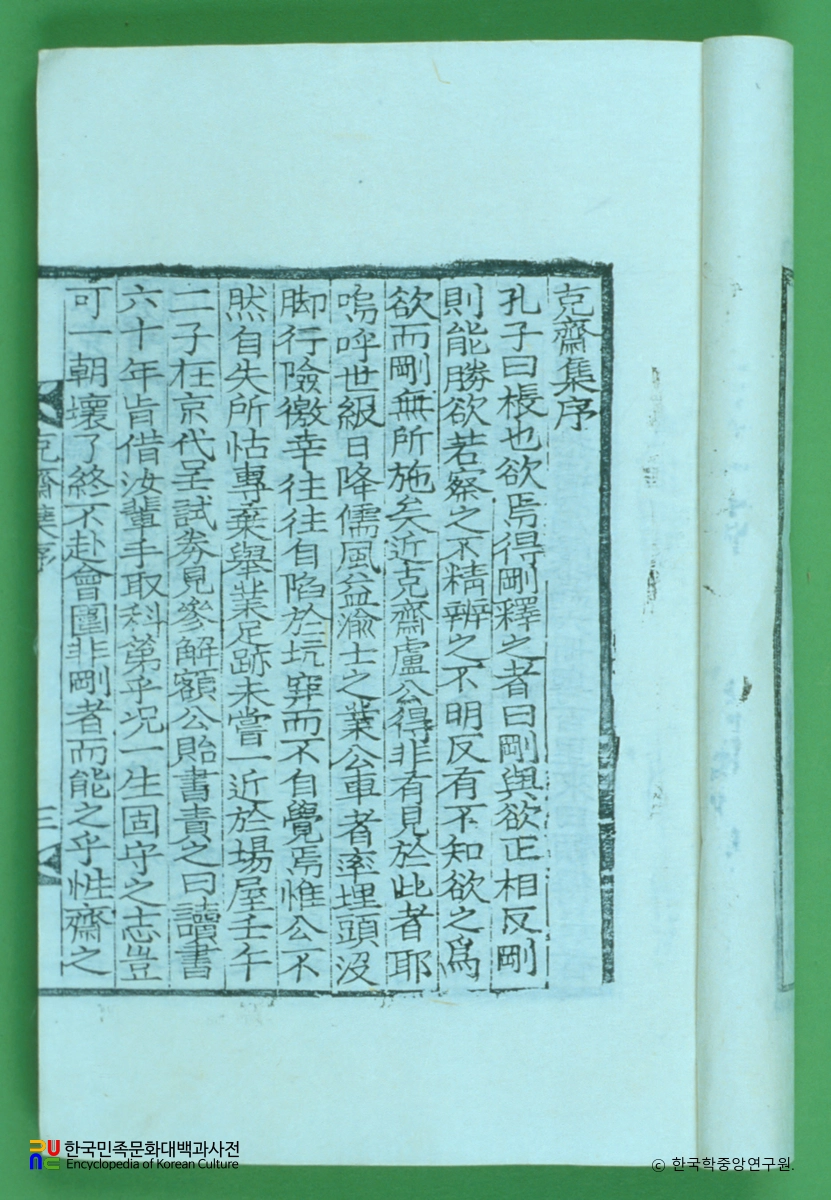 克齋集序
孔子曰棖也欲焉得剛釋之者曰剛與欲正相反剛
則能勝欲若察之不精辨之不明反有不知欲之爲
欲而剛無所施矣近克齋盧公得非有見於此者耶
嗚呼世級日降儒風益渝士之業公車者率埋頭沒
脚行險徼幸往往自陷於坑穽而不自覺焉惟公不
然自失所怙專棄擧業足跡未嘗一近於場屋壬午
二子在京代呈試券見參解額公貽書責之曰讀書
六十年肯借汝輩手取科第乎况一生固守之志豈
可一朝壞了終不赴會圍非剛者而能之乎性齋之
克齋集序
三
한국민족문화대백과사전
Encyclopedia of Korean Culture
© 한국학중앙연구원.